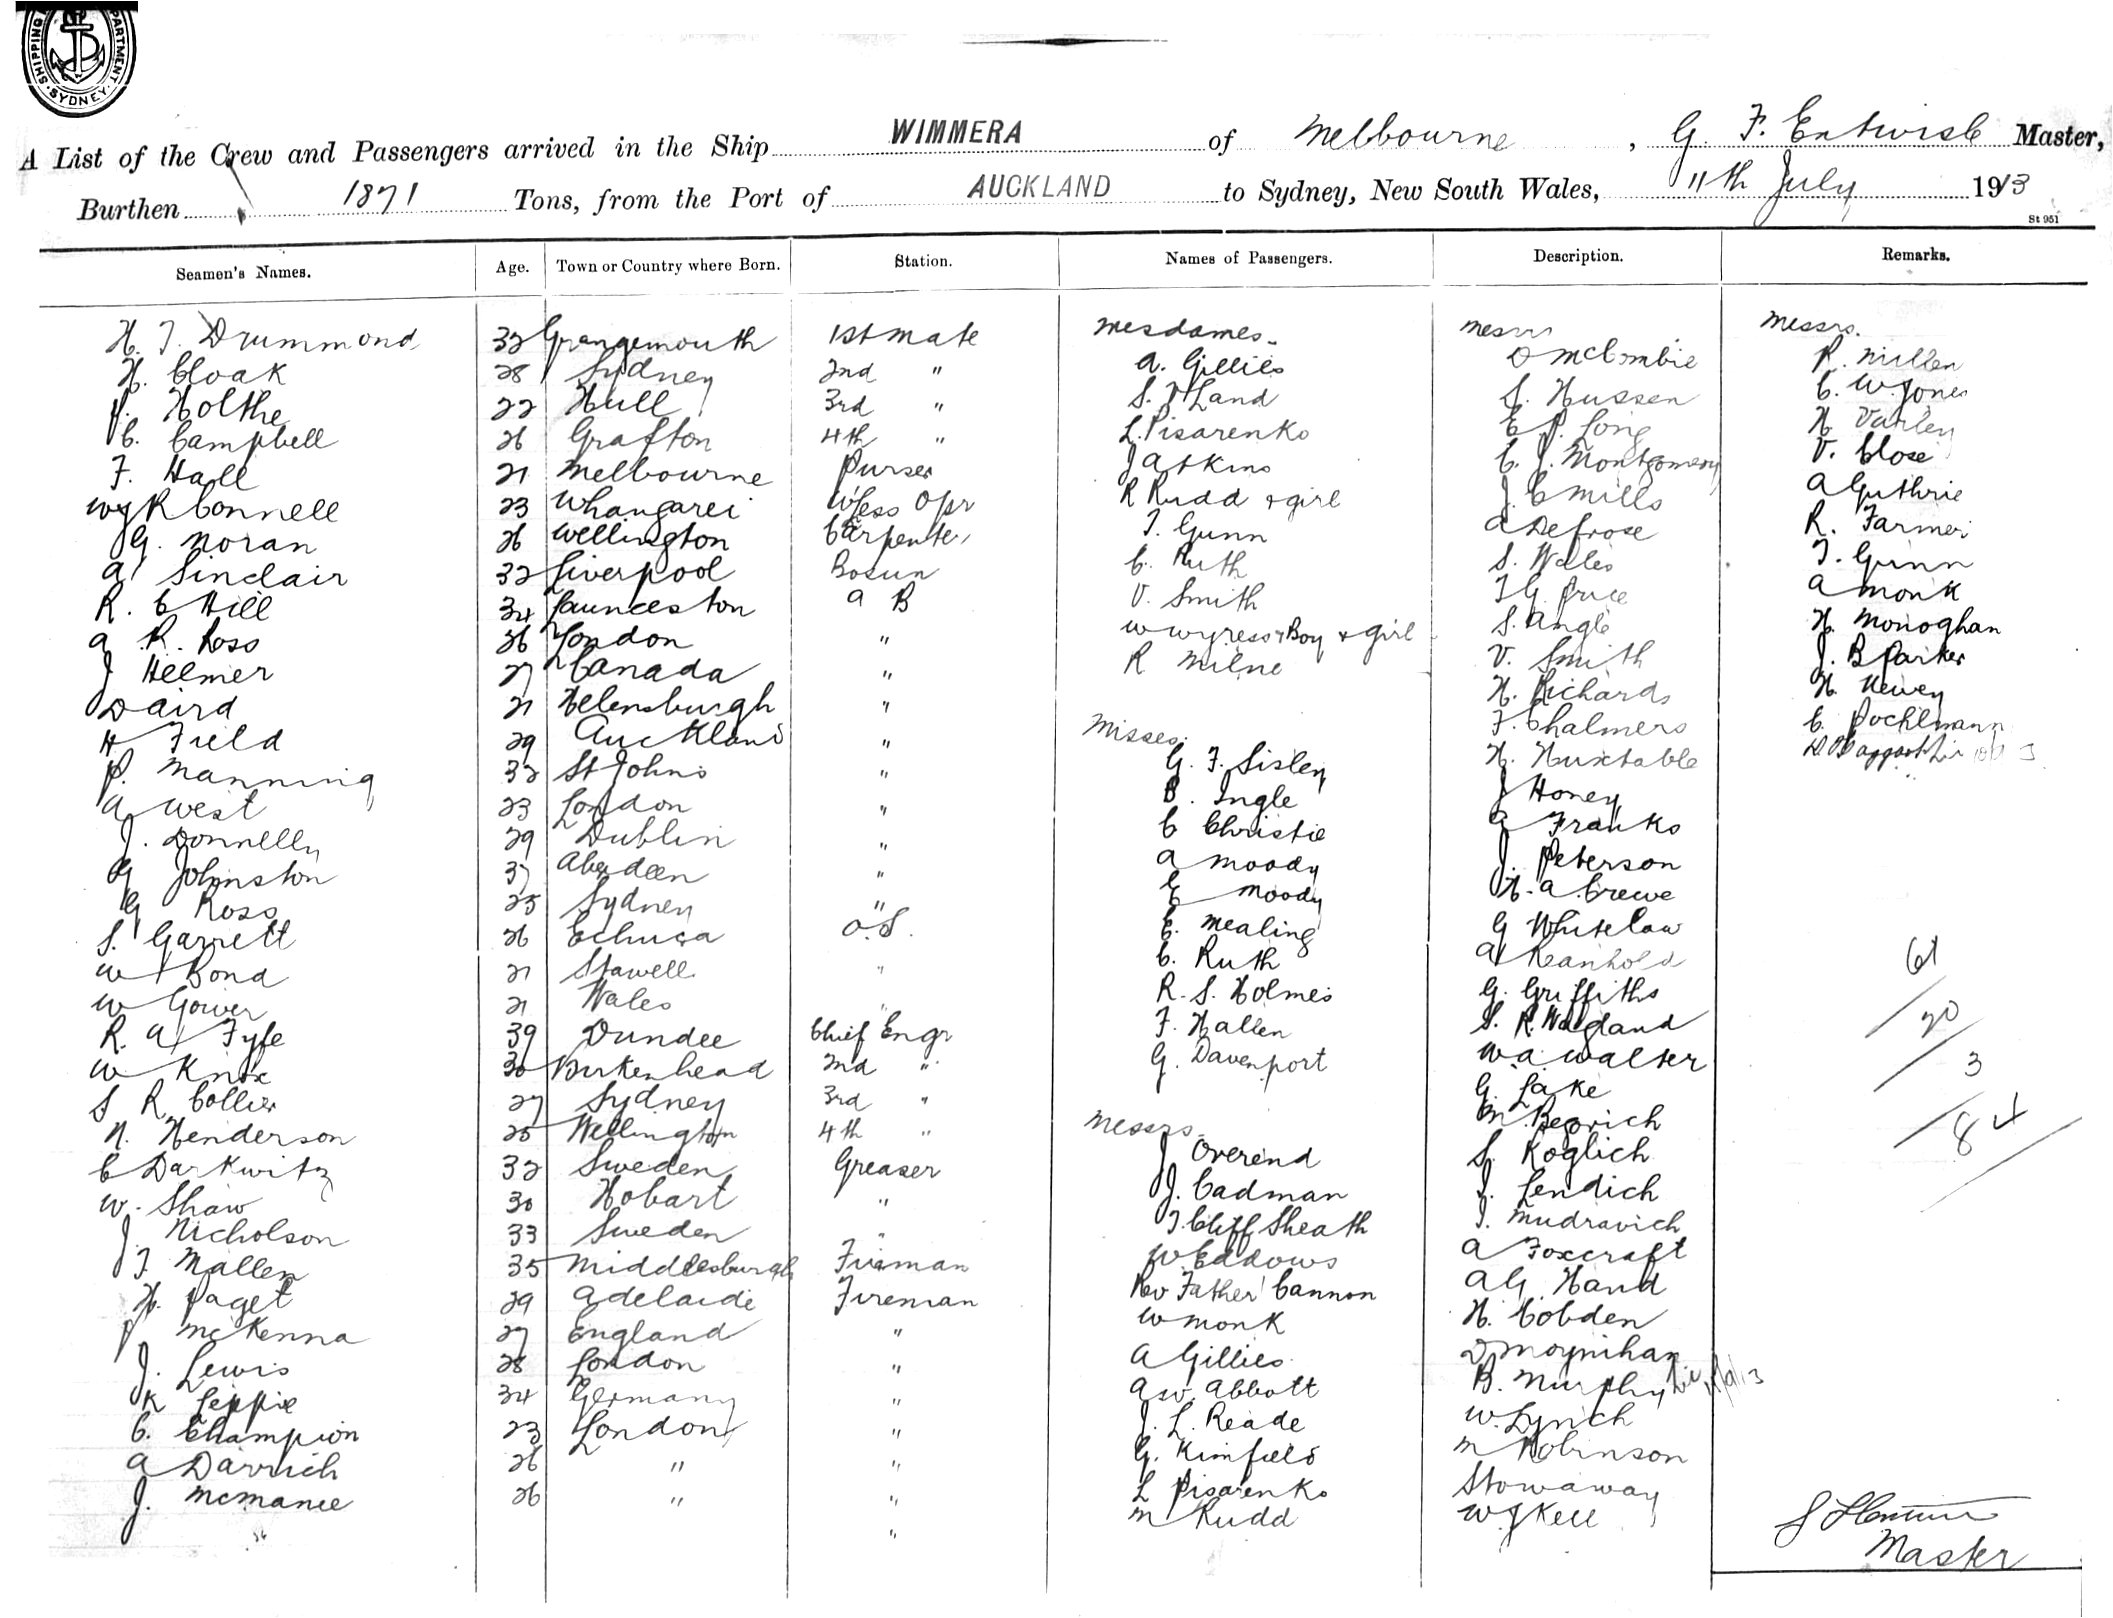 SHIPPING DEPARTMENT SYDNEY
A List of the Crew and Passengers arrived in the Ship WIMMERA of Melbourne, G. F. Entwisle Master,
Burthen 1871 Tons, from the Port of AUCKLAND to Sydney, New South Wales, 11th July 1913
St 951
Seamen's Names. Age. Town or Country where Born. Station. Names of Passengers. Description. Remarks.
H. J. Drummond 32 Grangemouth 1st mate
H. Cloak 28 Sydney 2nd "
P. Holthe 22 Hull 3rd "
C. Campbell 26 Grafton 4th "
F. Hall 21 Melbourne Purser
W J R Connell 23 Whangarei W/less Opr
G. Moran 26 Wellington Carpenter
A Sinclair 32 Liverpool Bosun
R. C Hill 34 Launceston A B
A. R. Ross 26 London "
J Hellmer 27 Canada "
D Aird 21 Helensburgh "
H Field 29 Auckland "
P. Manning 32 St Johns "
A West 23 London "
J. Donnelly 29 Dublin "
G Johnston 37 Aberdeen "
G Ross 25 Sydney "
S. Garrett 26 Echuca O.S.
W Bond 21 Stawell "
W Gower 21 Wales "
R. A Fyfe 39 Dundee Chief Engr
W Knox 30 Birkenhead 2nd "
S R Collier 27 Sydney 3rd "
N. Henderson 25 Wellington 4th "
C Darkwitz 32 Sweden Greaser
W. Shaw 30 Hobart "
J Nicholson 33 Sweden "
T Mallen 35 Middlesburgh Fireman
H. Paget 29 Adelaide Fireman
P McKenna 27 England "
J. Lewis 28 London "
K Seppie 34 Germany "
C. Champion 23 London "
A Darrich 26 " "
J. McManee 26 " "
"
36
Mesdames.
A. Gillies
S. V Land
L. Pisarenko
J Atkins
R Rudd + girl
T. Gunn
C. Ruth
V. Smith
W Wyress + Boy + girl
R Milne
Misses.
G. F. Sisley
B. Ingle
C Christie
A Moody
E Moody
E. Mealing
C. Ruth
R. S. Holmes
F. Hallen
G. Davenport
Messrs
J Overend
J. Cadman
T. Cliff Sheath
W. Eddows
Rev Father Cannon
W Monk
A Gillies
A W. Abbott
J. L. Reade
G. Kimfield
L Pisarenko
M Rudd
Messrs
D McCombie
S. Hussen
E P. Long
C. J. Montgomery
J C Mills
A Defrose
S. Wales
T G. Price
S. Angle
V. Smith
H. Richards
F. Chalmers
H. Huxtable
J Honey
A Franks
J. Peterson
H. A. Crewe
G Whitelaw
A Reanhold
G. Griffiths
S. R. Wayland
W. A. Walter
G. Lake
M. Begovich
S. Koglich
J. Lendich
J. Mudravich
A Foxcraft
A G. Hand
H. Cobden
D Moynihan
B. Murphy
W. Lynch
M Robinson
Stowaway
W J Kell
Messrs.
R. Millen
C. W. Jones
H Varley
V. Close
A Guthrie
R. Farmer
T. Gunn
A Monk
H. Monoghan
J. B Parker
H. Newey
C. Pochlmann
61
/ 20
/ 3
/ 84
Master